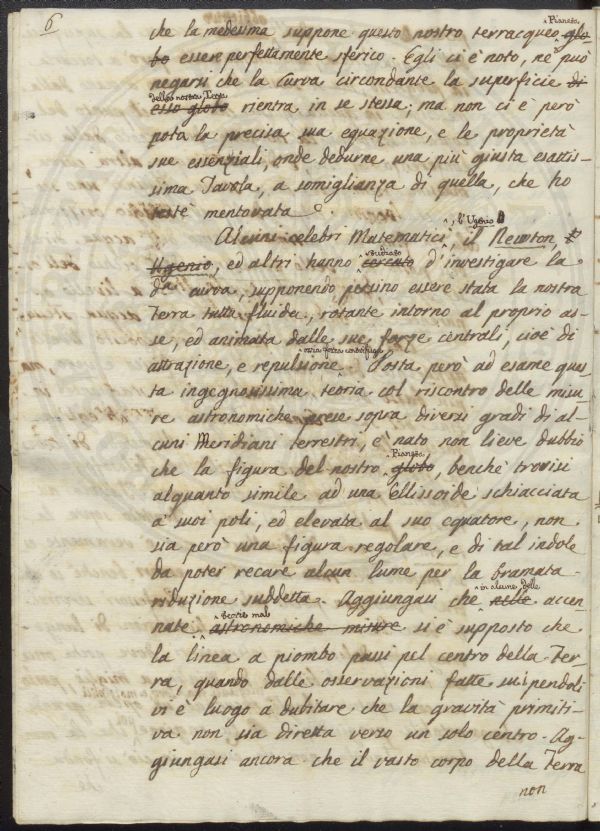 6
che la medesima suppone questo nostro terracqueo glo-
Pianeta
bo essere perfettamente sferico. Egli ci è noto, nè può
negarsi che la Curva circondante la superficie di
della nostra Terra
esso globo rientra in se stessa; ma non ci è però
nota la precisa sua equazione, e le proprietà
sue essenziali, onde dedurne una più giusta esattis-
sima Tavola, a somiglianza di quella, che ho
testè mentovata
Alcuni celebri Matematici, il Newton, e
l'Ugenio
Ugenio, ed altri hanno cercato d'investigare la
studiato
de curva, supponendo persino essere stata la nostra
Terra tutta fluida, rotante intorno al proprio as-
se, ed animata dalle sue forze centrali, cioè di
attrazione, e repulsione. Posta però ad esame ques-
ossia forza centrifuga
ta ingegnosissima teoria col riscontro delle misu-
re astronomiche prese sopra diversi gradi di al-
cuni Meridiani terrestri, è nato non lieve dubbio
che la figura del nostro globo, benchè trovisi
Pianeta
alquanto simile ad una Ellissoide schiacciata
a' suoi poli, ed elevata al suo equatore, non
sia però una figura regolare, e di tal indole
da poter recare alcun lume per la bramata
riduzione suddetta. Aggiungasi che nelle accen-
in alcune delle
nate astronomiche misure si è supposto che
la linea a piombo passi pel centro della Ter-
ra, quando dalle osservazioni fatte sui pendoli
vi è luogo a dubitare che la gravità primiti-
va non sia diretta verso un solo centro. Ag-
giungasi ancora che il vasto corpo della Terra
non